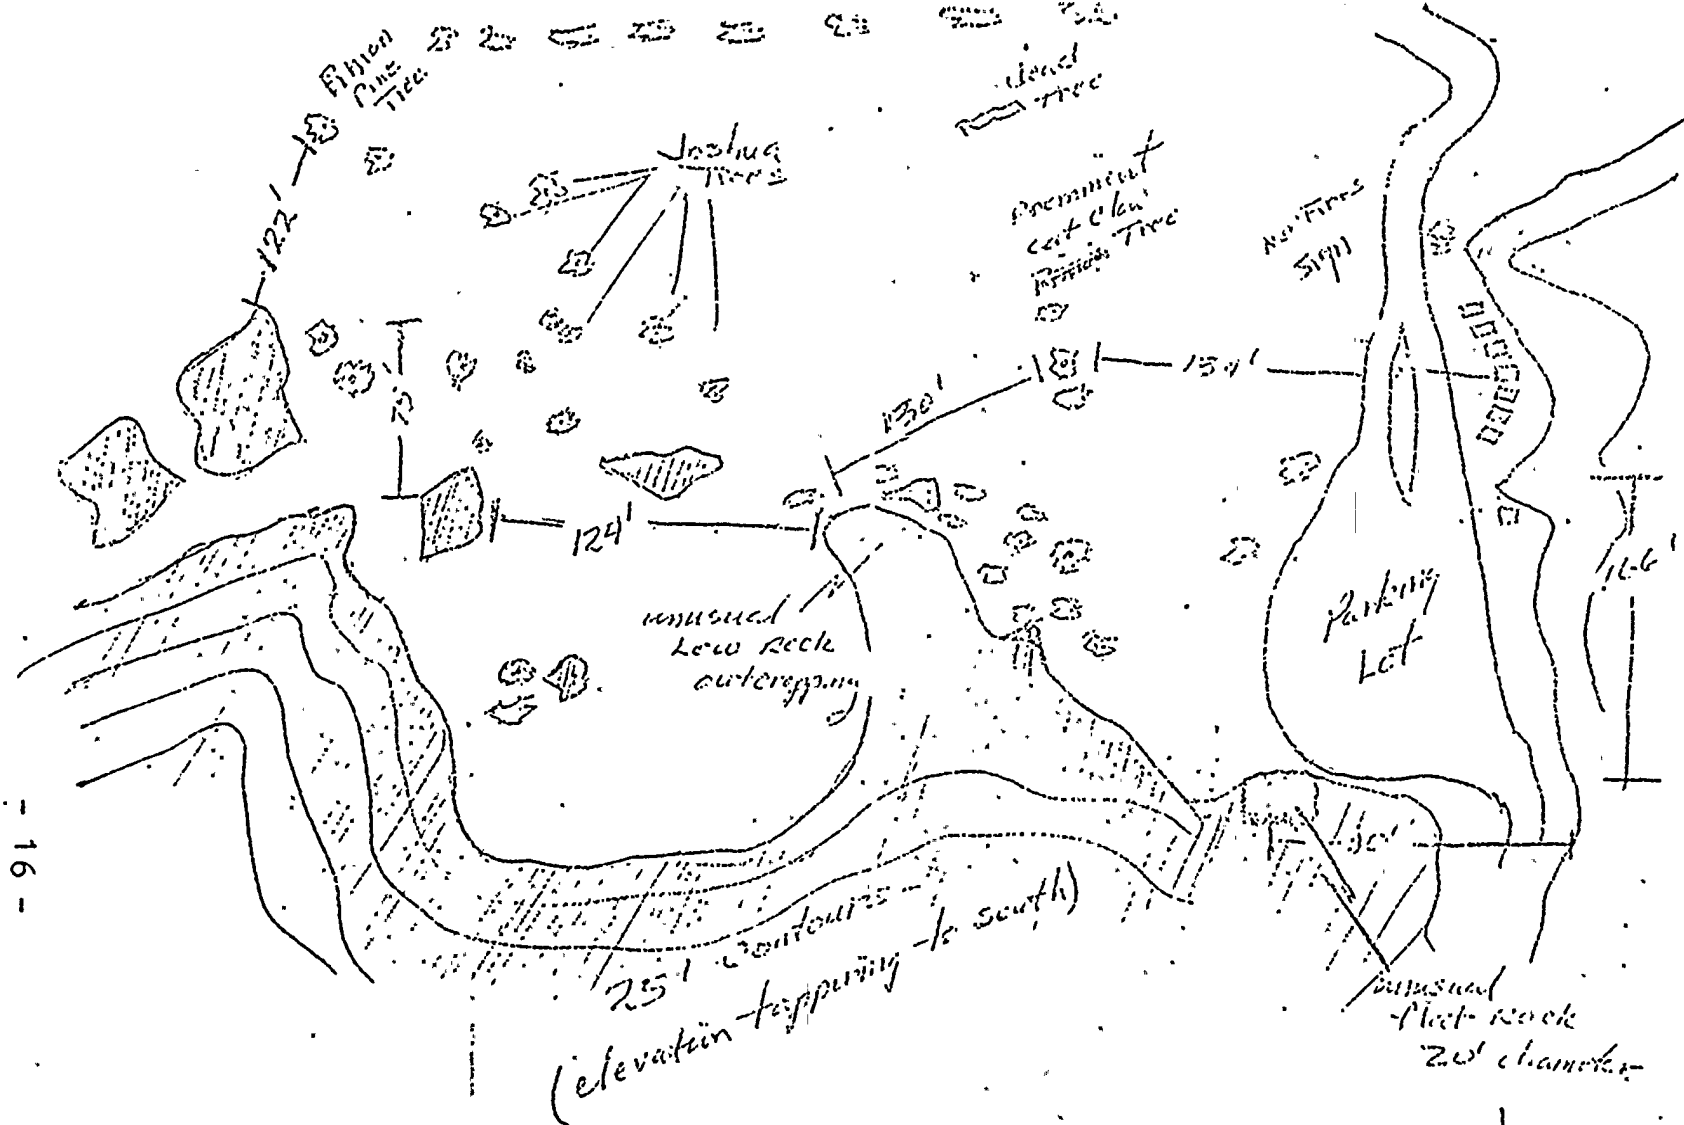 Pinion
Pine
Tree
Dead
Tree
Joshua
Trees
122'
Preminint
cat claw
Tree
No Fires
Sign
75'
130'
124'
unusual
Low Rock
outcropping
Parking
Lot
166'
25' contours
(elevation tappuring to south)
unusual
Flat Rock
20' diameter
- 16 -